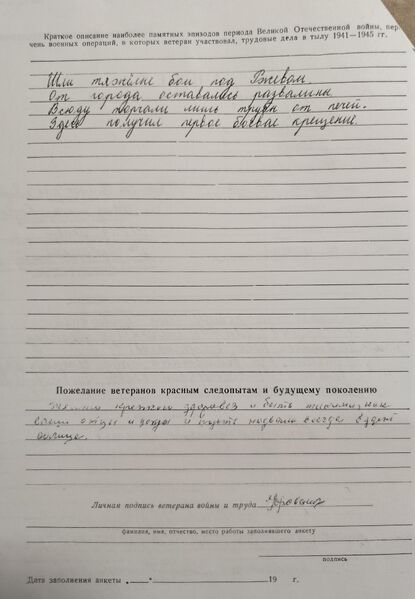 Краткое описание наиболее памятных эпизодов периода Великой Отечественной войны, пер
чень военных операций, в которых ветеран участвовал, трудовые дела в тылу 1941—1945 гг.
Шли тяжёлые бои под Ржевом.
От города оставалось развалины.
Всюду торчали лишь трубы от печей.
Здесь получил первое боевое крещение.
Пожелание ветеранов красным следопытам и будущему поколению
Желаю крепкого и быть такими, как
ваши отцы и деды и пусть всегда будет
солнце.
Личная подпись ветерана войны и труда
фамилия, имя, отчество, место работы заполнявшего анкету
подпись
Дата заполнения анкеты „ “ 19 г.